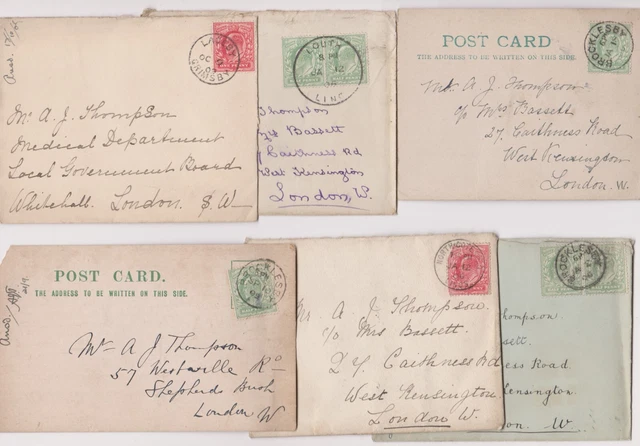 Ansd.
LACEBY
OC
03
GRIMSBY
Mr A. J. Thompson
Medical Department
Local Government Board
Whitehall. London. S. W
LOUTH
JA 12
LINC
Thompson
Bassett
Caithness Rd
West Kensington
London, W.
POST CARD
THE ADDRESS TO BE WRITTEN ON THIS SIDE.
BROCKLESBY
Mr. A. J. Thompson
c/o Mrs Bassett
27, Caithness Road
West Kensington
London. W.
Ansd.
POST CARD.
THE ADDRESS TO BE WRITTEN ON THIS SIDE.
BROCKLESBY
Mr A J Thompson
57 Westville Rd
Shepherds Bush
London W
Mr. A J Thompson.
c/o Mrs Bassett.
27 Caithness Rd
West Kensington
London W.
BROCKLESBY
hompson.
sett.
ess Road
ensington
on. W